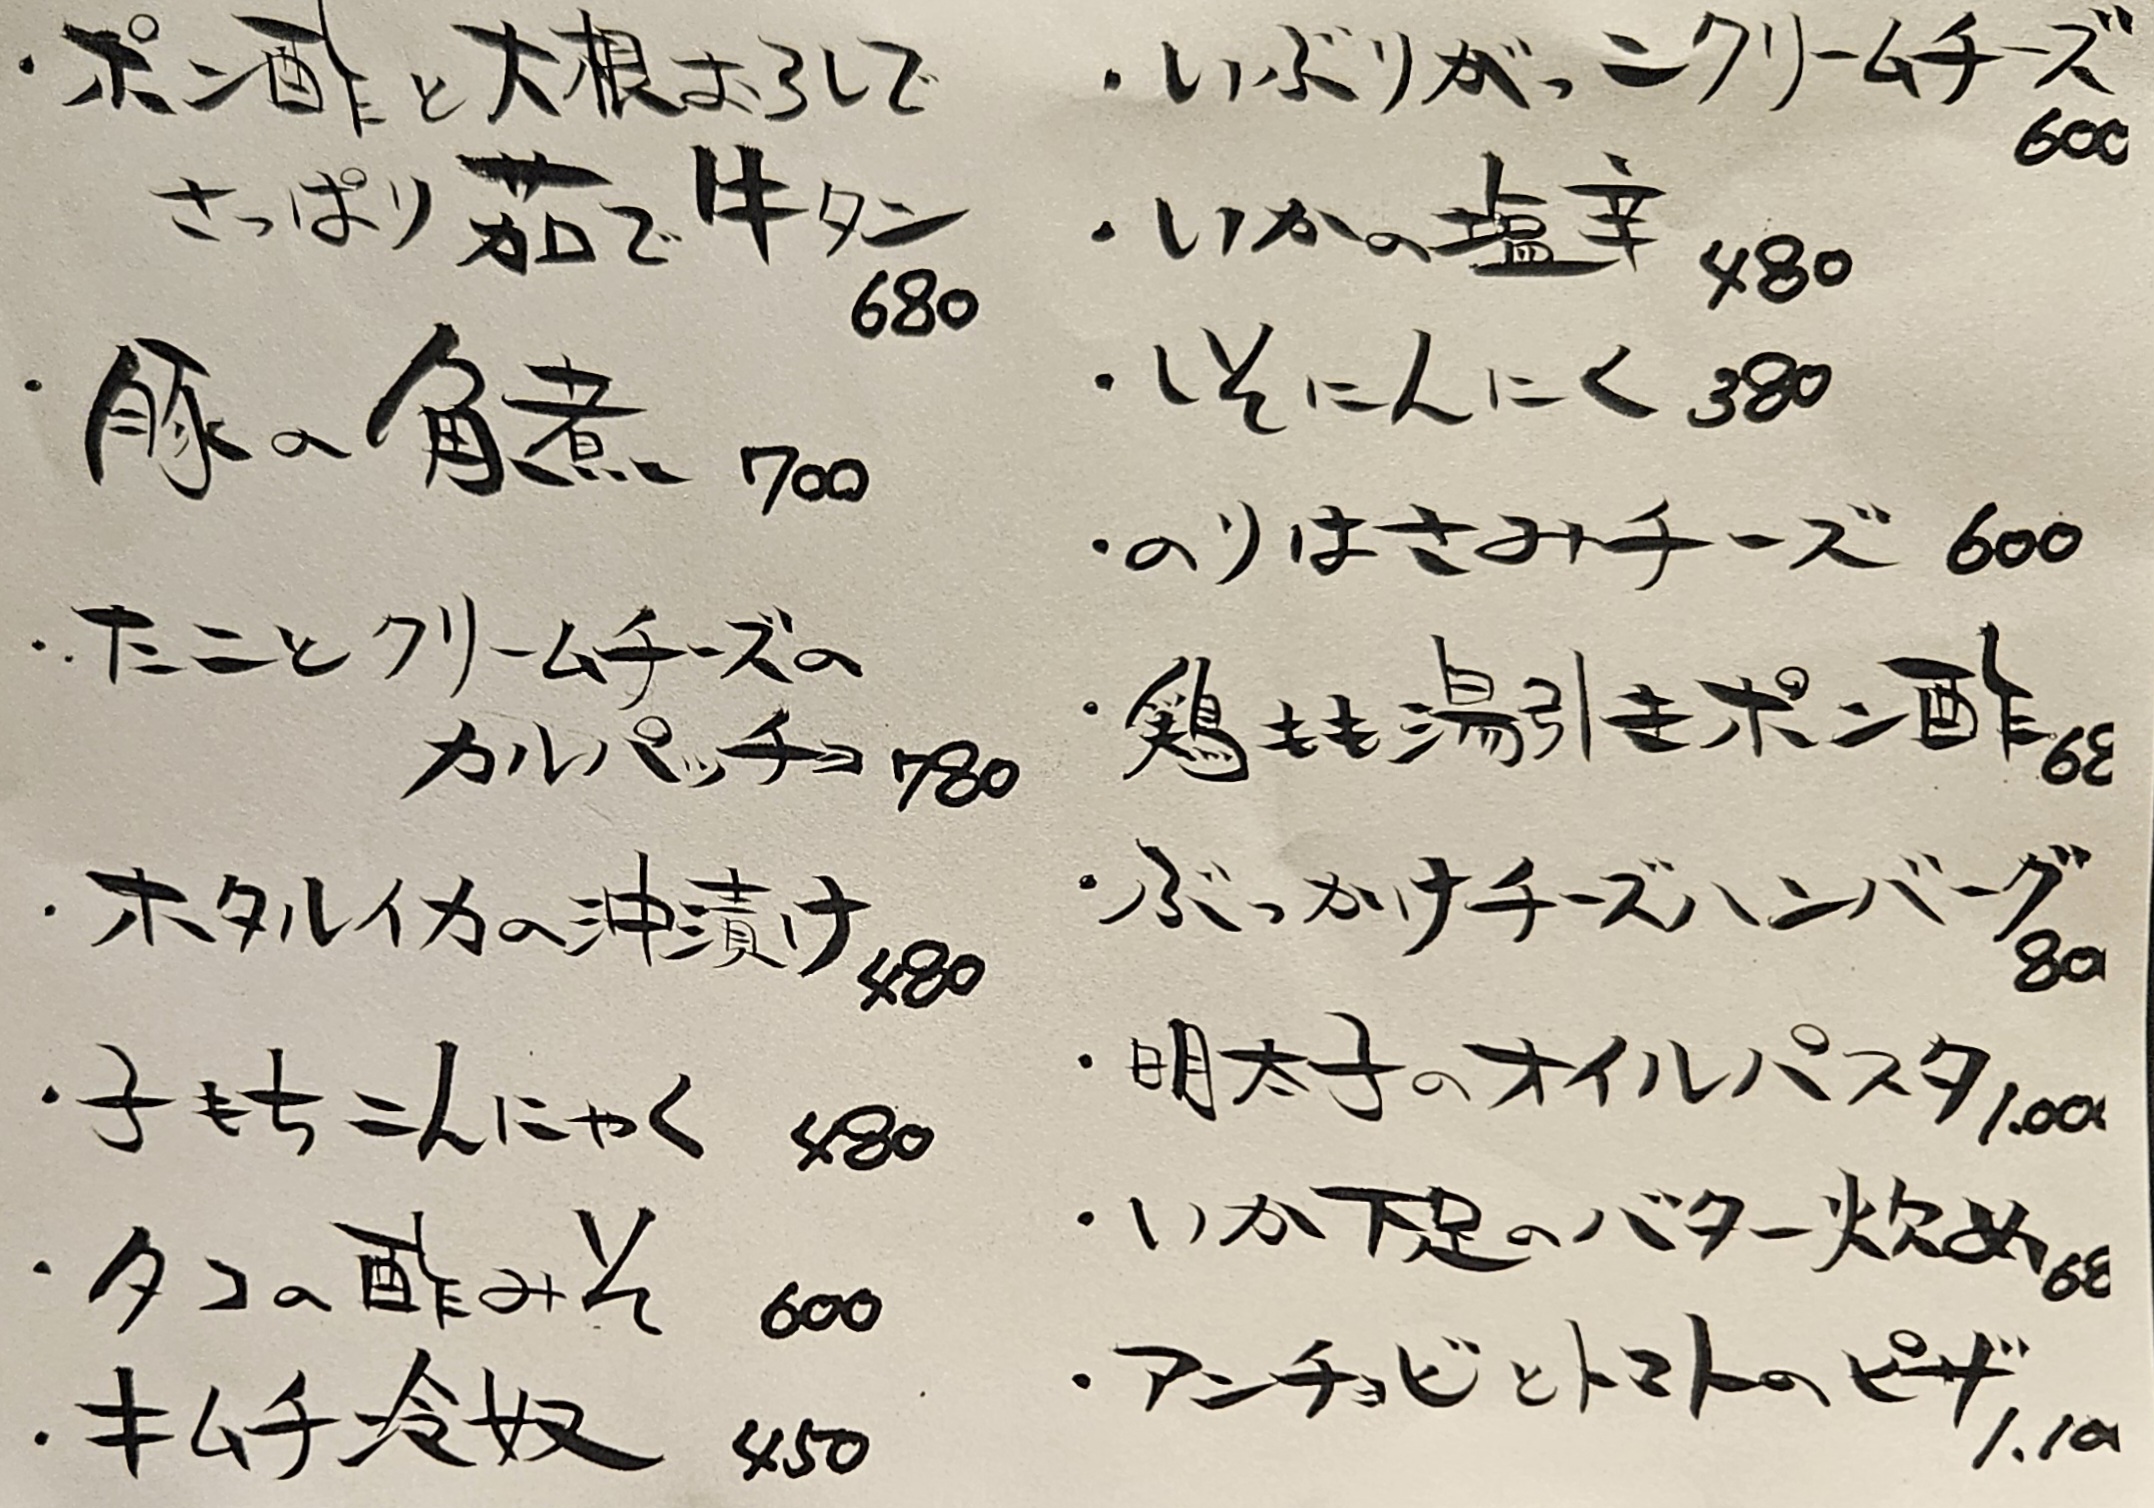 ・ポン酢と大根おろしで
さっぱり茹で牛タン
680
・豚の角煮 700
・たことクリームチーズの
カルパッチョ 780
・ホタルイカの沖漬け 480
・子もちこんにゃく 480
・タコの酢みそ 600
・キムチ冷奴 450
・いぶりがっこクリームチーズ
600
・いかの塩辛 480
・しそにんにく 380
・のりはさみチーズ 600
・鶏もも湯引きポン酢 68
・ぶっかけチーズハンバーグ
80
・明太子のオイルパスタ 1.00
・いか下足のバター炒め 68
・アンチョビとトマトのピザ
1.10